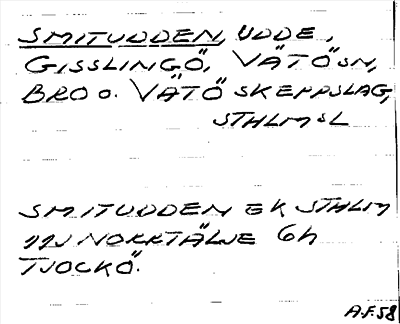 SMITUDDEN, UDDE,
GISSLINGÖ, VÄTÖ SN,
BRO O. VÄTÖ SKEPPSLAG,
STHLMS L
SMITUDDEN EK STHLM
11J NORRTÄLJE 6h
TJOCKÖ.
A.F.58